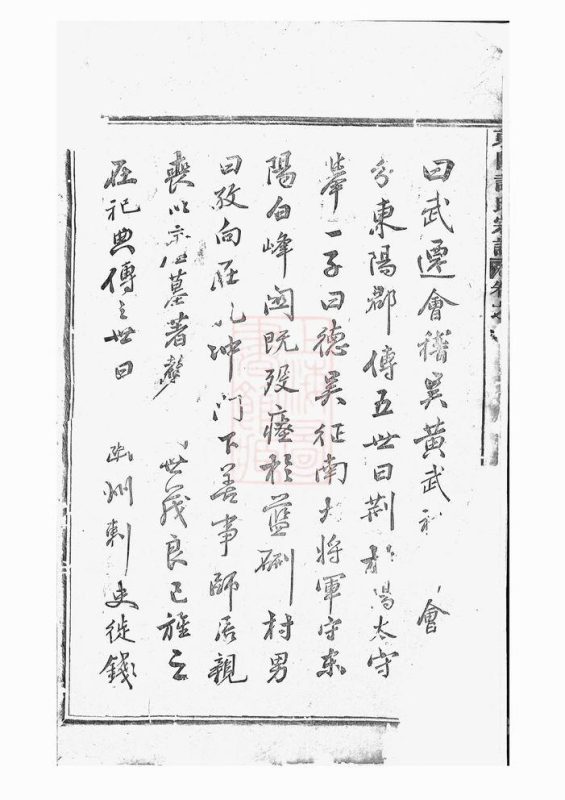 曰武遷會稽吳黃武 會
分東陽郡傳五世曰荆 陽太守
舉一子曰德吳征南大將軍守東
陽白峰 既殁瘞於藍硎村男
曰孜向在 冲門下善事師居親
喪以 墓著 世茂良已旌之
在祀典傳 世曰 州刺史徙錢
東陽許氏宗譜 卷之